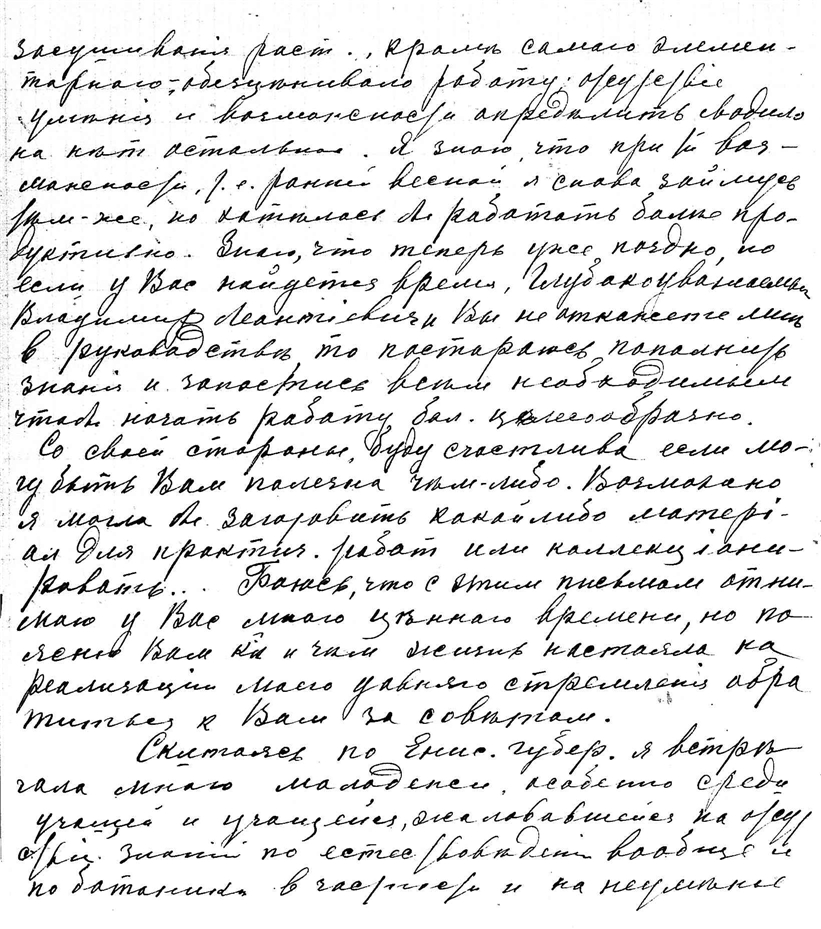 засушиванія раст., кромѣ самаго элемен-
тарнаго, обезцѣнивало работу; отсутствіе
умѣнія и возможности опредѣлить сводило
на нѣт остальное. Я знаю, что при воз-
можности, т.е. ранней весной я снова займусь
тѣм-же, но хотѣлось бы работать болѣе про-
дуктивно. Знаю, что теперь уже поздно, но
если у Вас найдется время, Глубокоуважаемый
Владимир Леонтіевич и Вы не откажете мнѣ
в руководствѣ, то постараюсь пополнить
знанія и запастись всѣм необходимым
чтобы начать работу бол. цѣлесообразно.
Со своей стороны, буду счастлива если мо-
гу быть Вам полезна чѣм-либо. Возможно
я могла бы заготовить какой либо матері-
ал для практич. работ или коллекціони-
ровать... Боюсь, что с этим письмом отни-
маю у Вас много цѣннаго времени, но по
ясню Вам как и чѣм жизнь настояла на
реализаціи моего давняго стремленія обра
титься к Вам за совѣтом.
Скитаясь по Енис. губер. я встрѣ
чала много молодежи, особенно среди
учащей и учащейся, жаловавшейся на отсут
ствіе знаній по естествовѣдѣнію вообще и
по ботаникѣ в частности и на неумѣніе